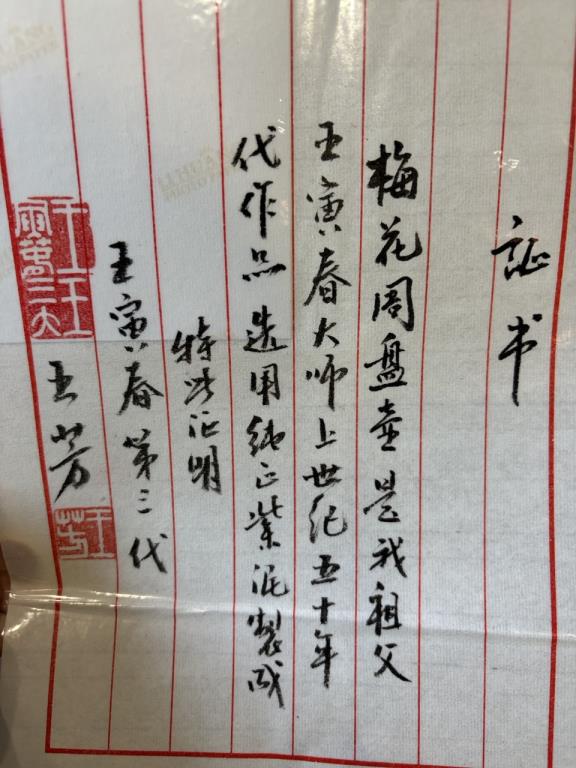 证书
梅花周盘壶是我祖父
王寅春大师上世纪五十年
代作品选用纯正紫泥製成
特此证明
王寅春第三代
王芳
王芳